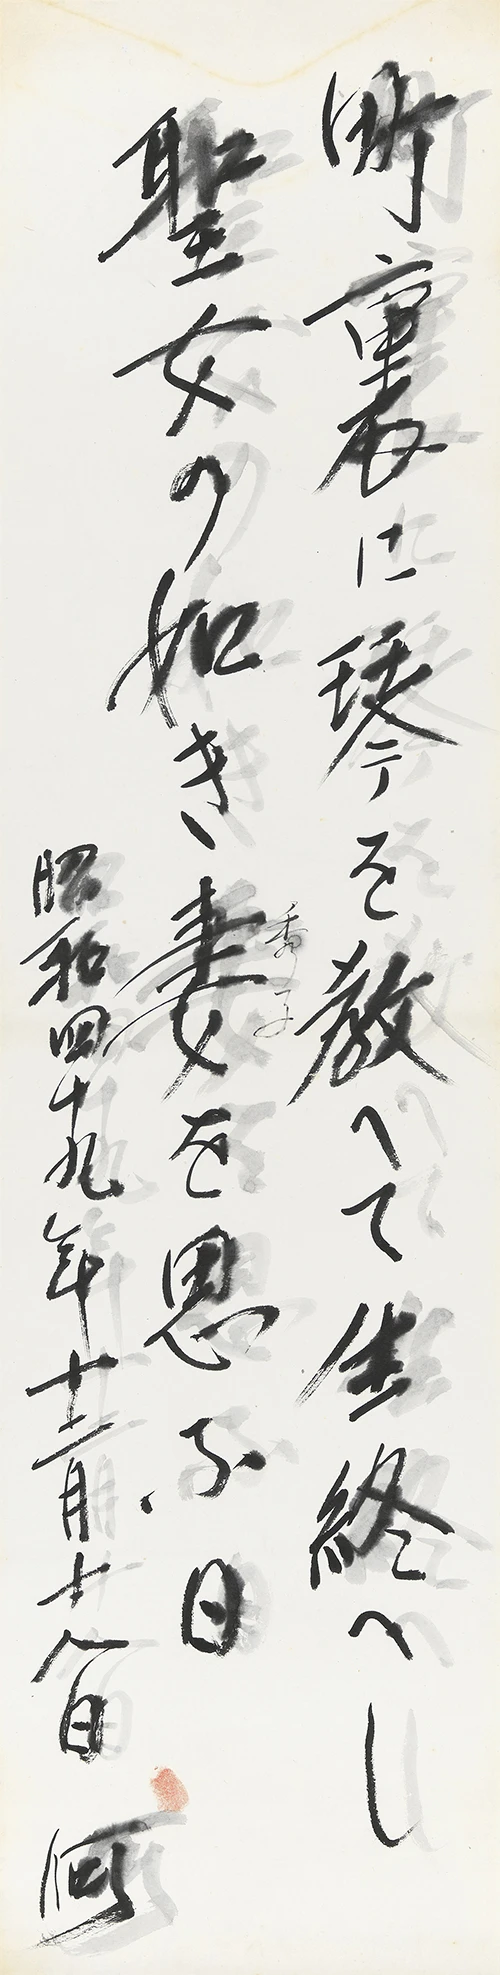 町裏に琴を教へて生終へし
聖女の如き妻を思ふ日
秀子
昭和四十九年十二月十八日
何